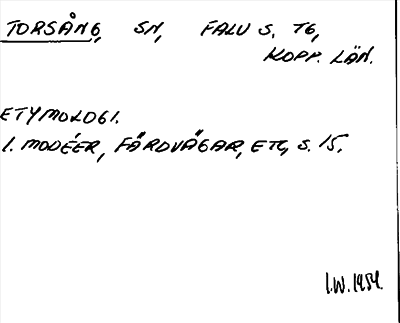 TORSÅNG, SN, FALU S. TG,
KOPP. LÄN.
ETYMOLOGI.
I. MODÉER, FÄRDVÄGAR, ETC, S. 15.
I.W. 1954.